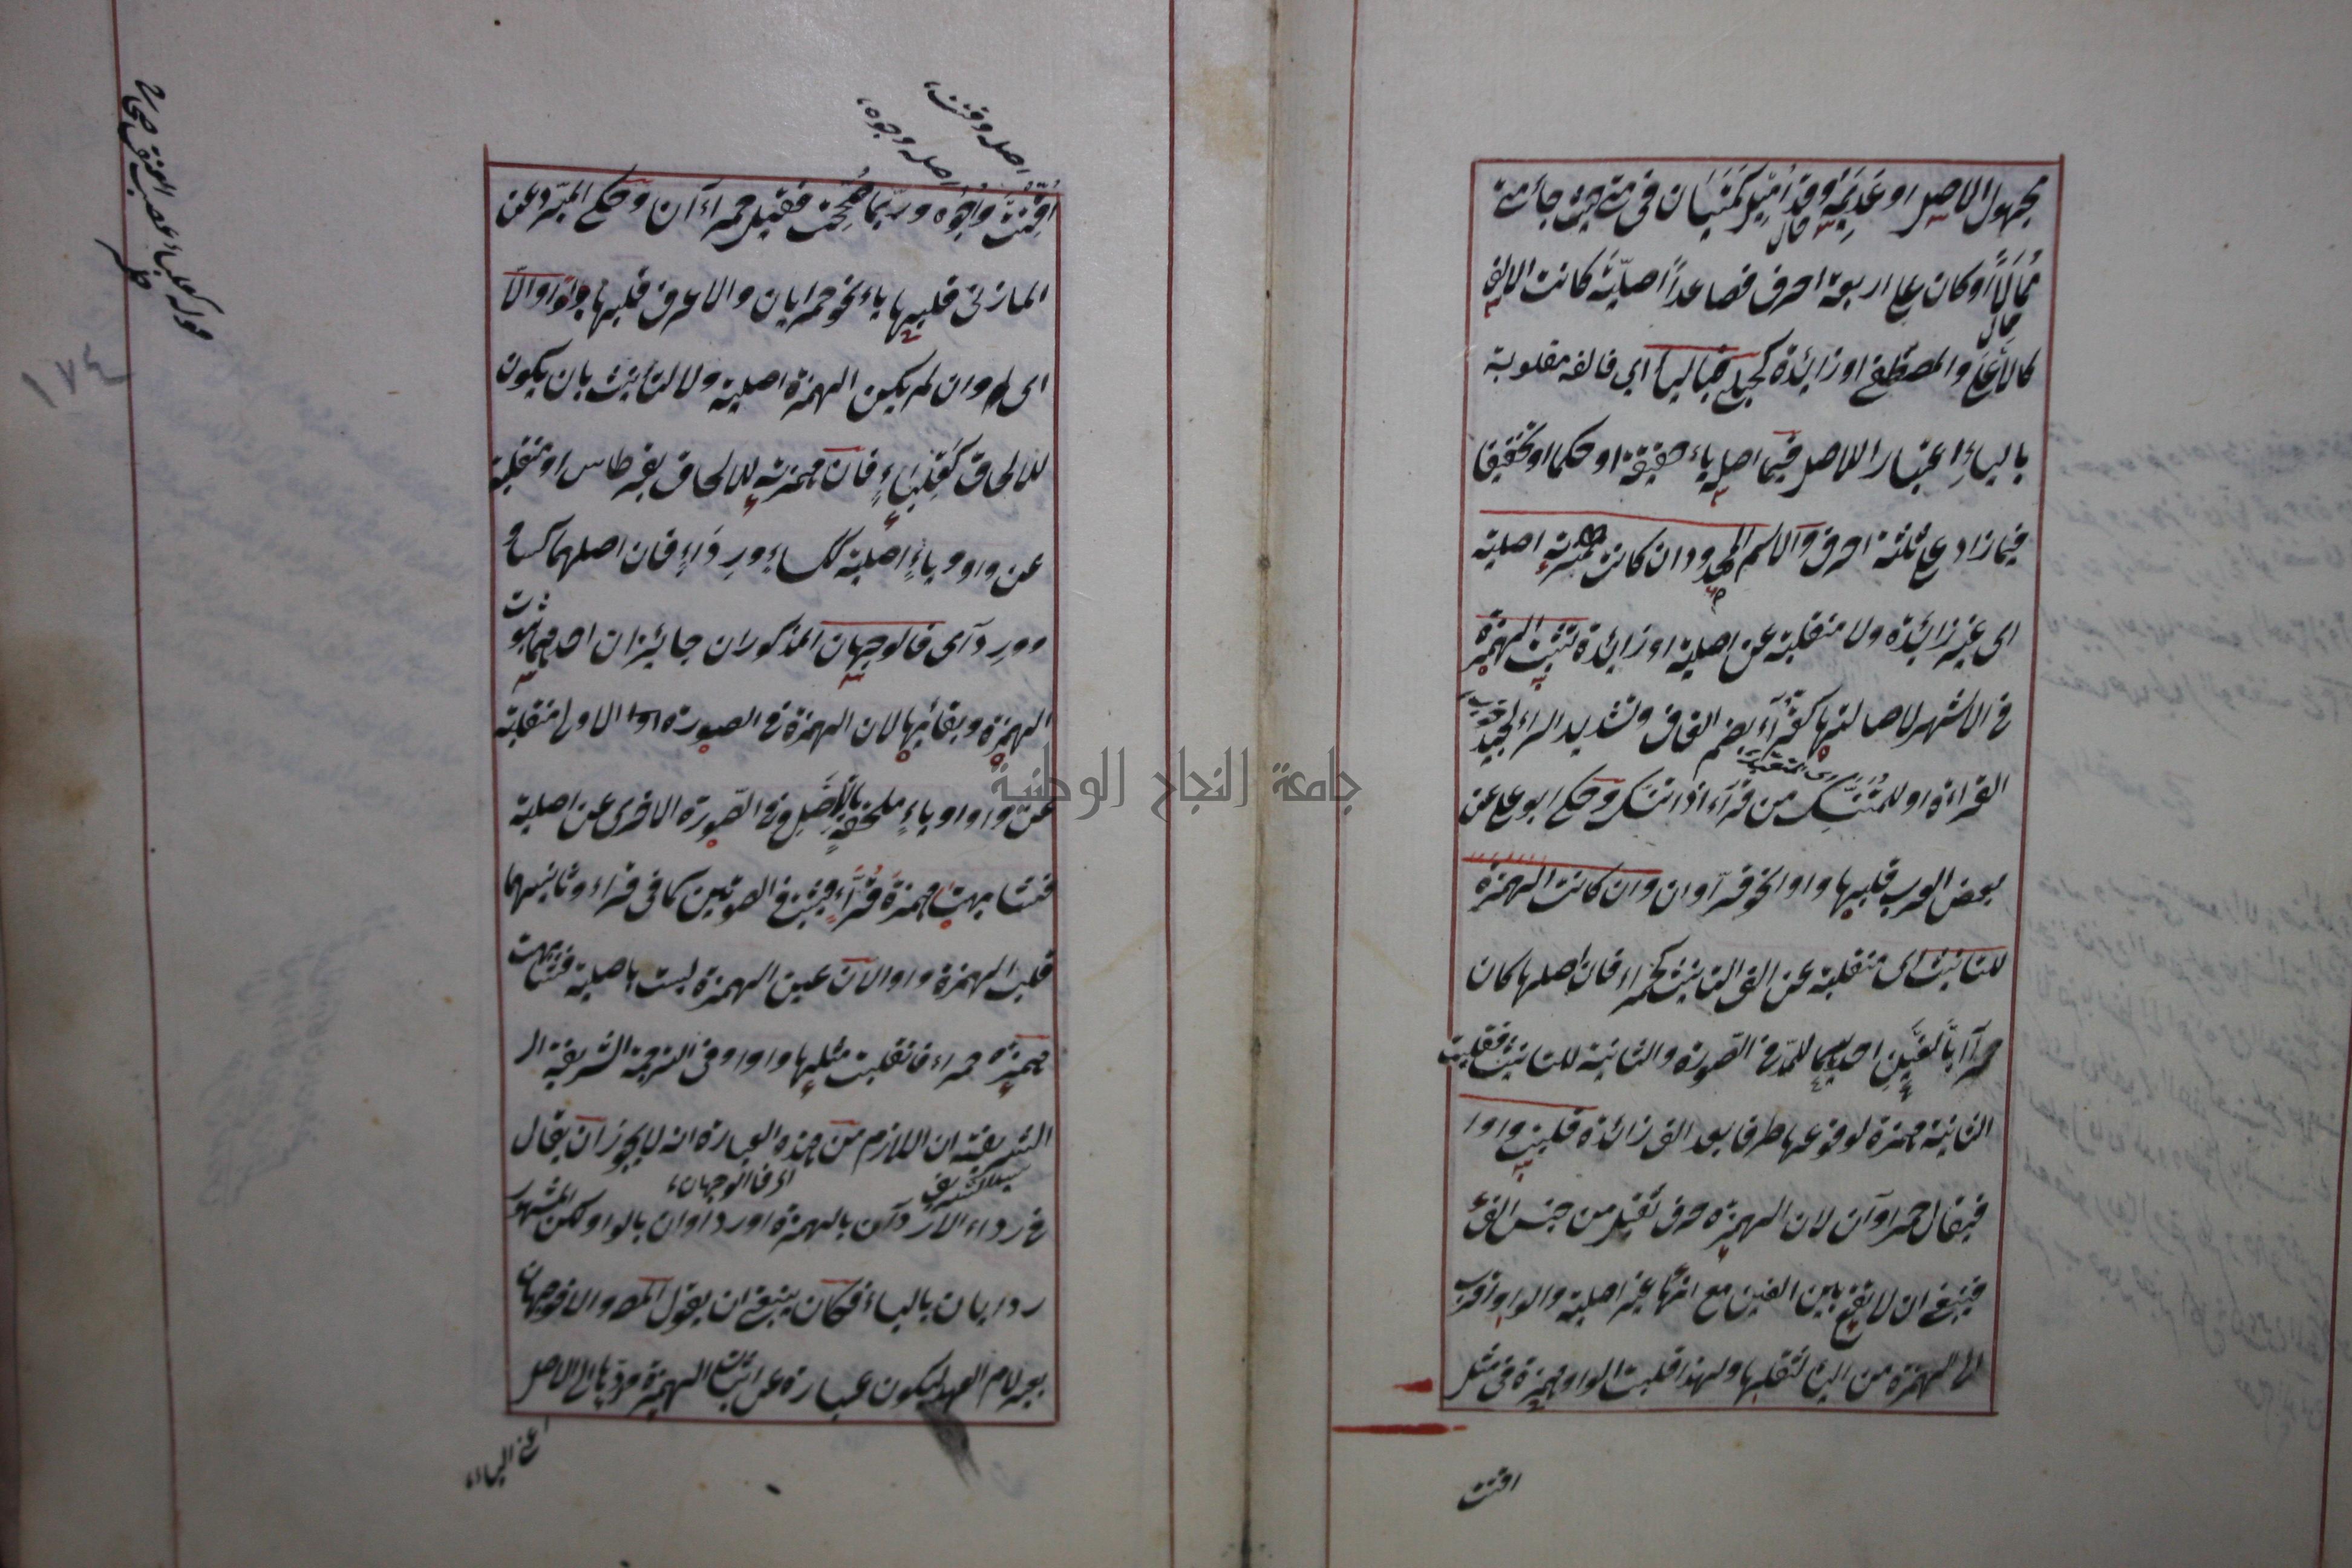 مجهول الاصل او عديمة وقد اميل كمتيان في متى حيث جائت
ممالاً او كان على اربعة احرف فصاعداً اصليّة كانت الالف
كالاعلى والمصطفى او زائدة كحبلى فبالياء اي فالفه مقلوبة
بالياء اعتبار الاصل فيما اصله ياء حقيقة او حكما او تخفيفا
فيما زاد على ثلثة احرف والاسم الممدود ان كانت همزته اصلية
اى غير زائدة ولا منقلبة عن اصلية او زائدة تثبت الهمزة
في الاشهر لاصالتها كقرّآء بضم القاف وتشديد الراء لجيد
القراءة او للمتنسك من قرّاء اذا تنسك وحكى ابو على عن
بعض العرب قلبها واوا نحو قرّاوان وان كانت الهمزة
للتانيث اى منقلبة عن الف التانيث كحمراء فان اصلها كان
حمرآ بالفين احديهما للمدّ في الصّورة والثانية للتانيث فقلبت
الثانية همزة لوقوعها طرفا بعد الف زائدة قلبت واوا
فيقال حمراوآن لان الهمزة حرف ثقيل من جنس الالف
فينبغي ان لا تقع بين الفين مع انها غير اصلية والواو اقرب
الى الهمزة من الياء لثقلها ولهذا قلبت الواو همزة في مثل
اقتت
اصله وقتت
اصله وجوه
اقّتت واُجوه وربّما صُحّحت فقيل حمراءآن وحكى المبرّد عن
المازنى قلبها ياء نحو حمرايان والاعرف قلبها واوا والّا
اى وان لم يكن الهمزة اصلية ولا للتانيث بان يكون
للالحاق كعلباءٍ فان همزته للالحاق بقرطاس او منقلبة
عن واو وياءٍ اصلية ككساءٍ ورداءٍ فان اصلهما كساو
ورداى فالوجهان المذكوران جايزان احدهما ثبوت
الهمزة وبقائها لان الهمزة في الصورة الاولى منقلبة
عن واو او ياءٍ ملحقةٍ بالاصل وفي الصّورة الاخرى عن اصلية
فتشابهت همزة قُرّاءٍ فتثبت في الصورتين كما في قراء وثانيهما
قلب الهمزة واوا لان عين الهمزة ليست باصلية فشابهت
همزة حمراء فانقلبت مثلها واوا وفى الترجمة الشريفة ال
الشريفية ان اللازم من هذه العبارة انه لا يجوز ان يقال
في رداء الا ردآآن بالهمزة او رداوان بالواو لكن المشهور
ردايان بالياء فكان ينبغى ان يقول المص والا فوجهان
بغير لام العهد ليكون عبارة عن اثبات الهمزة وردها الى الاصل
اعنى الياء
١٧٤
جامعة النجاح الوطنية